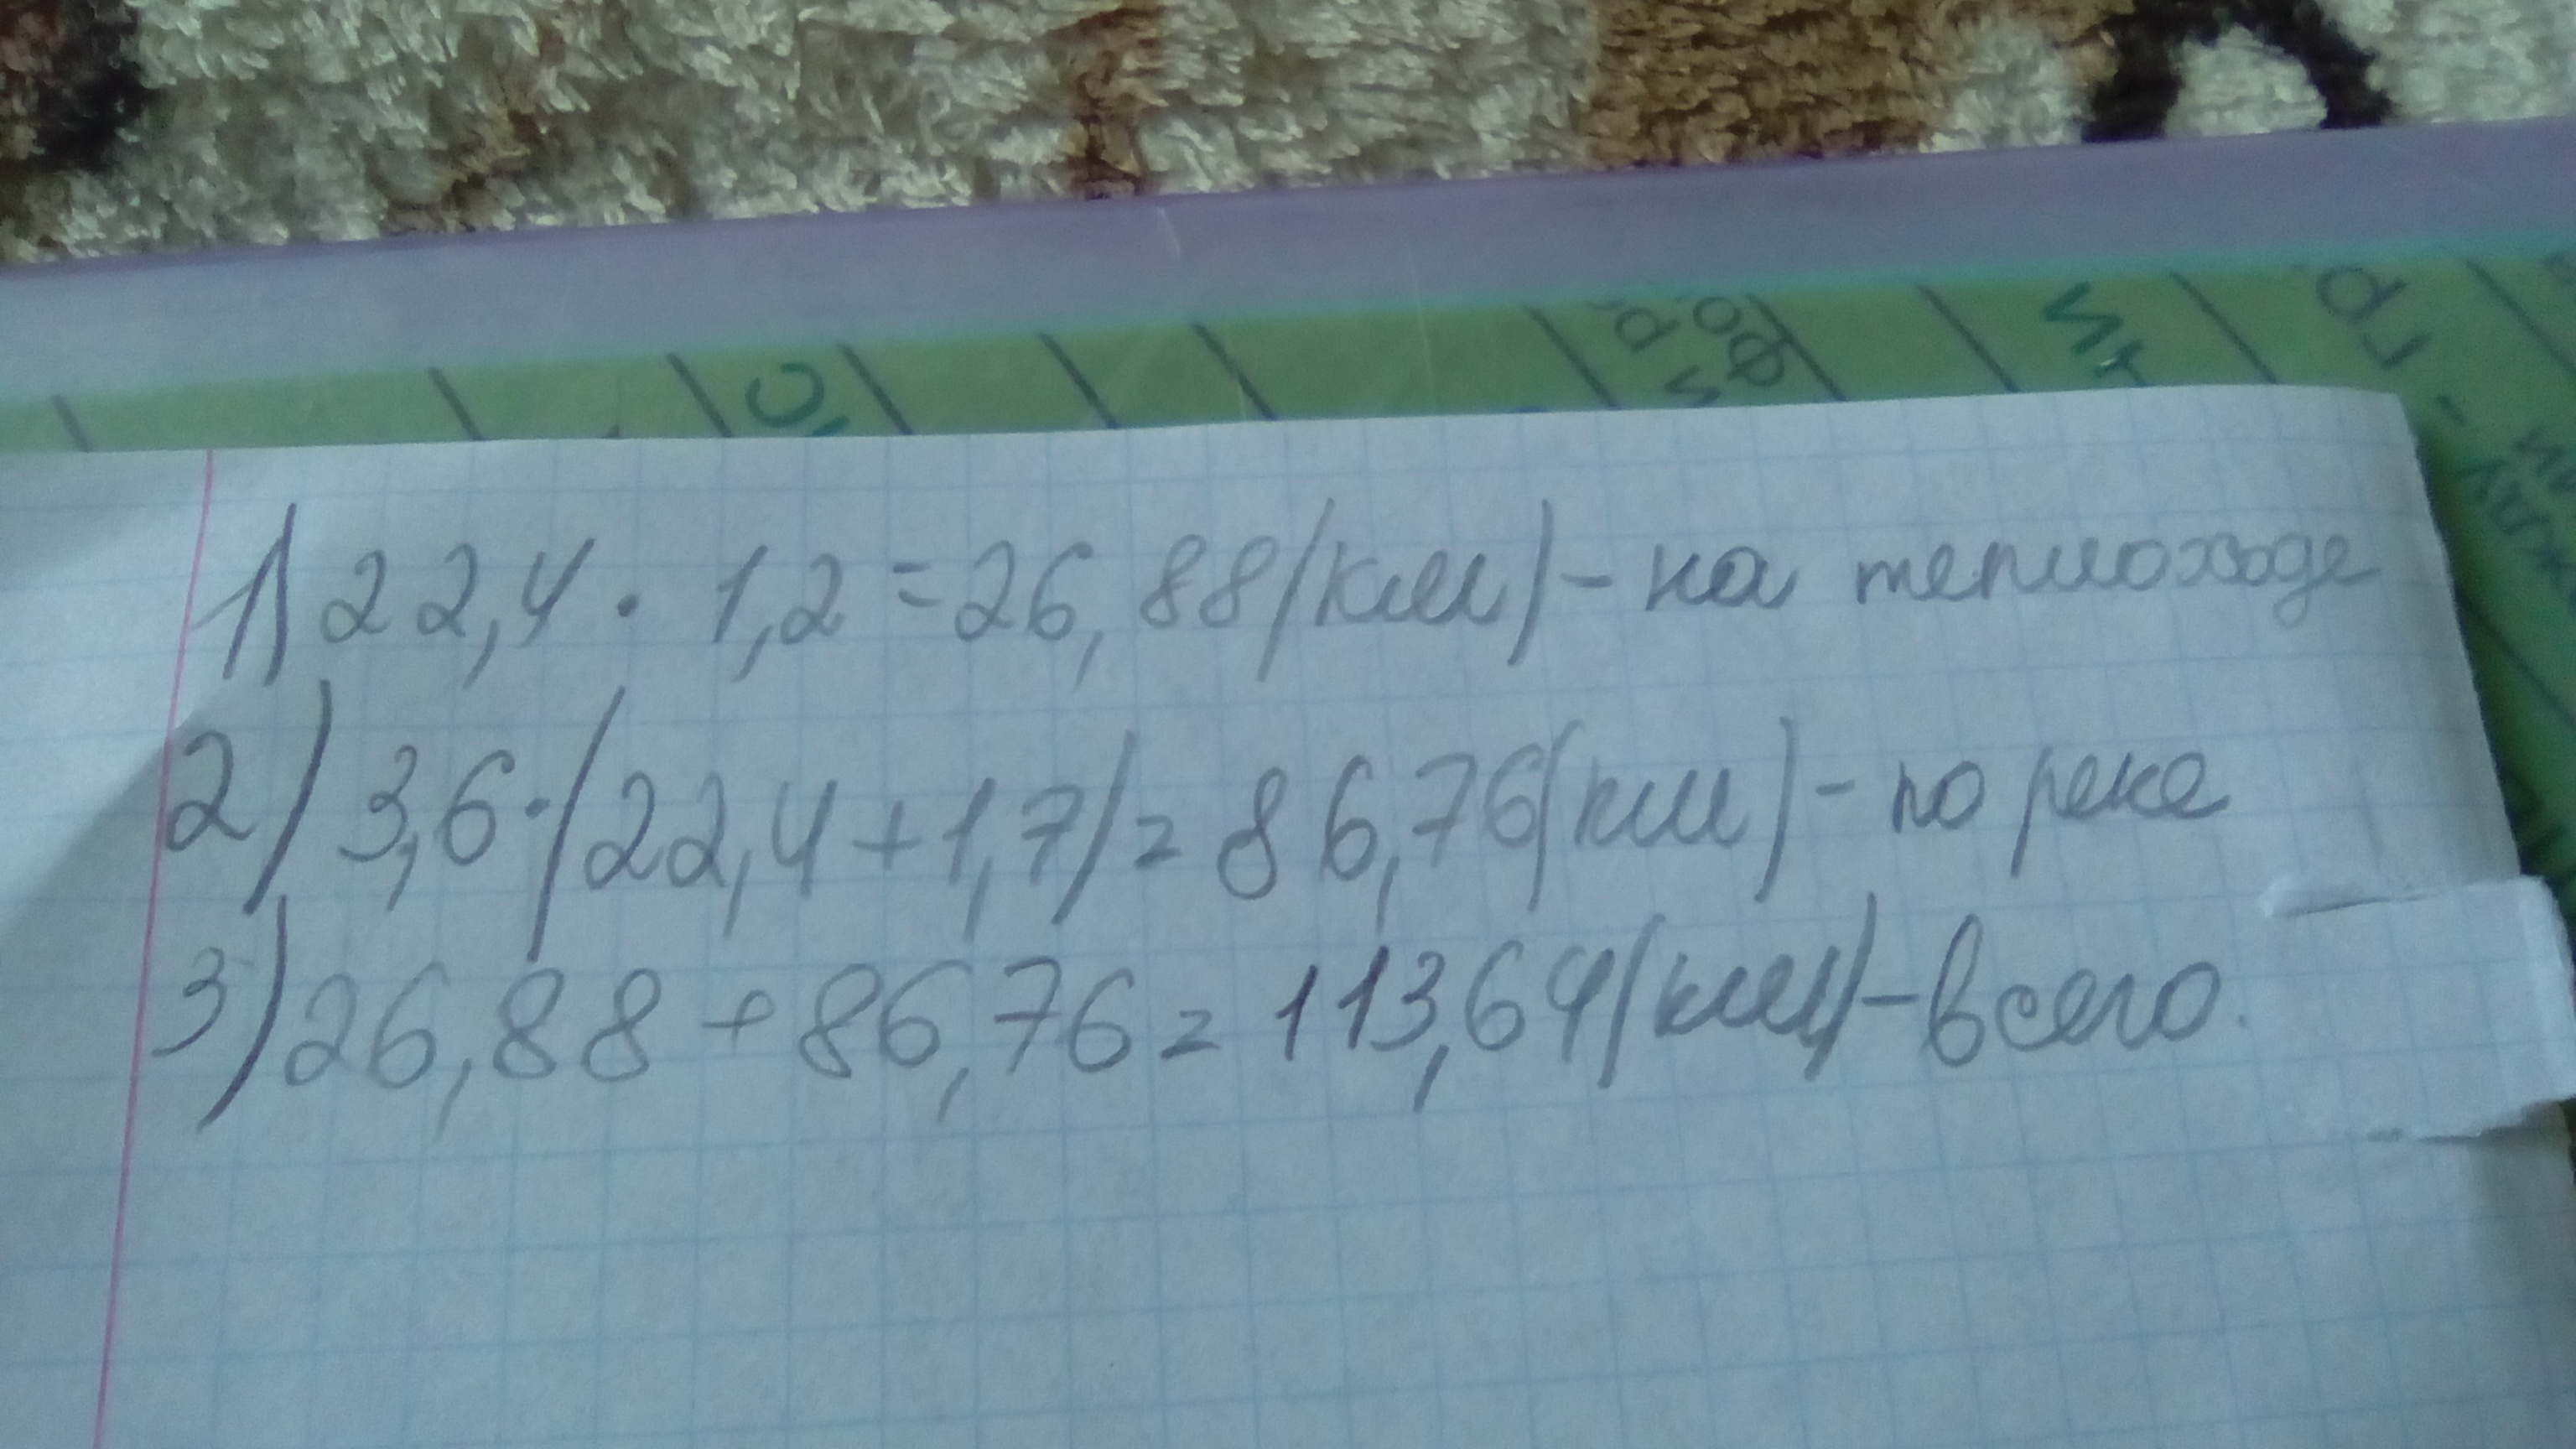 1) 22,4 · 1,2 = 26,88 (км) - на теплоходе
2) 3,6 · (22,4 + 1,7) = 86,76 (км) - по реке
3) 26,88 + 86,76 = 113,64 (км) - всего.